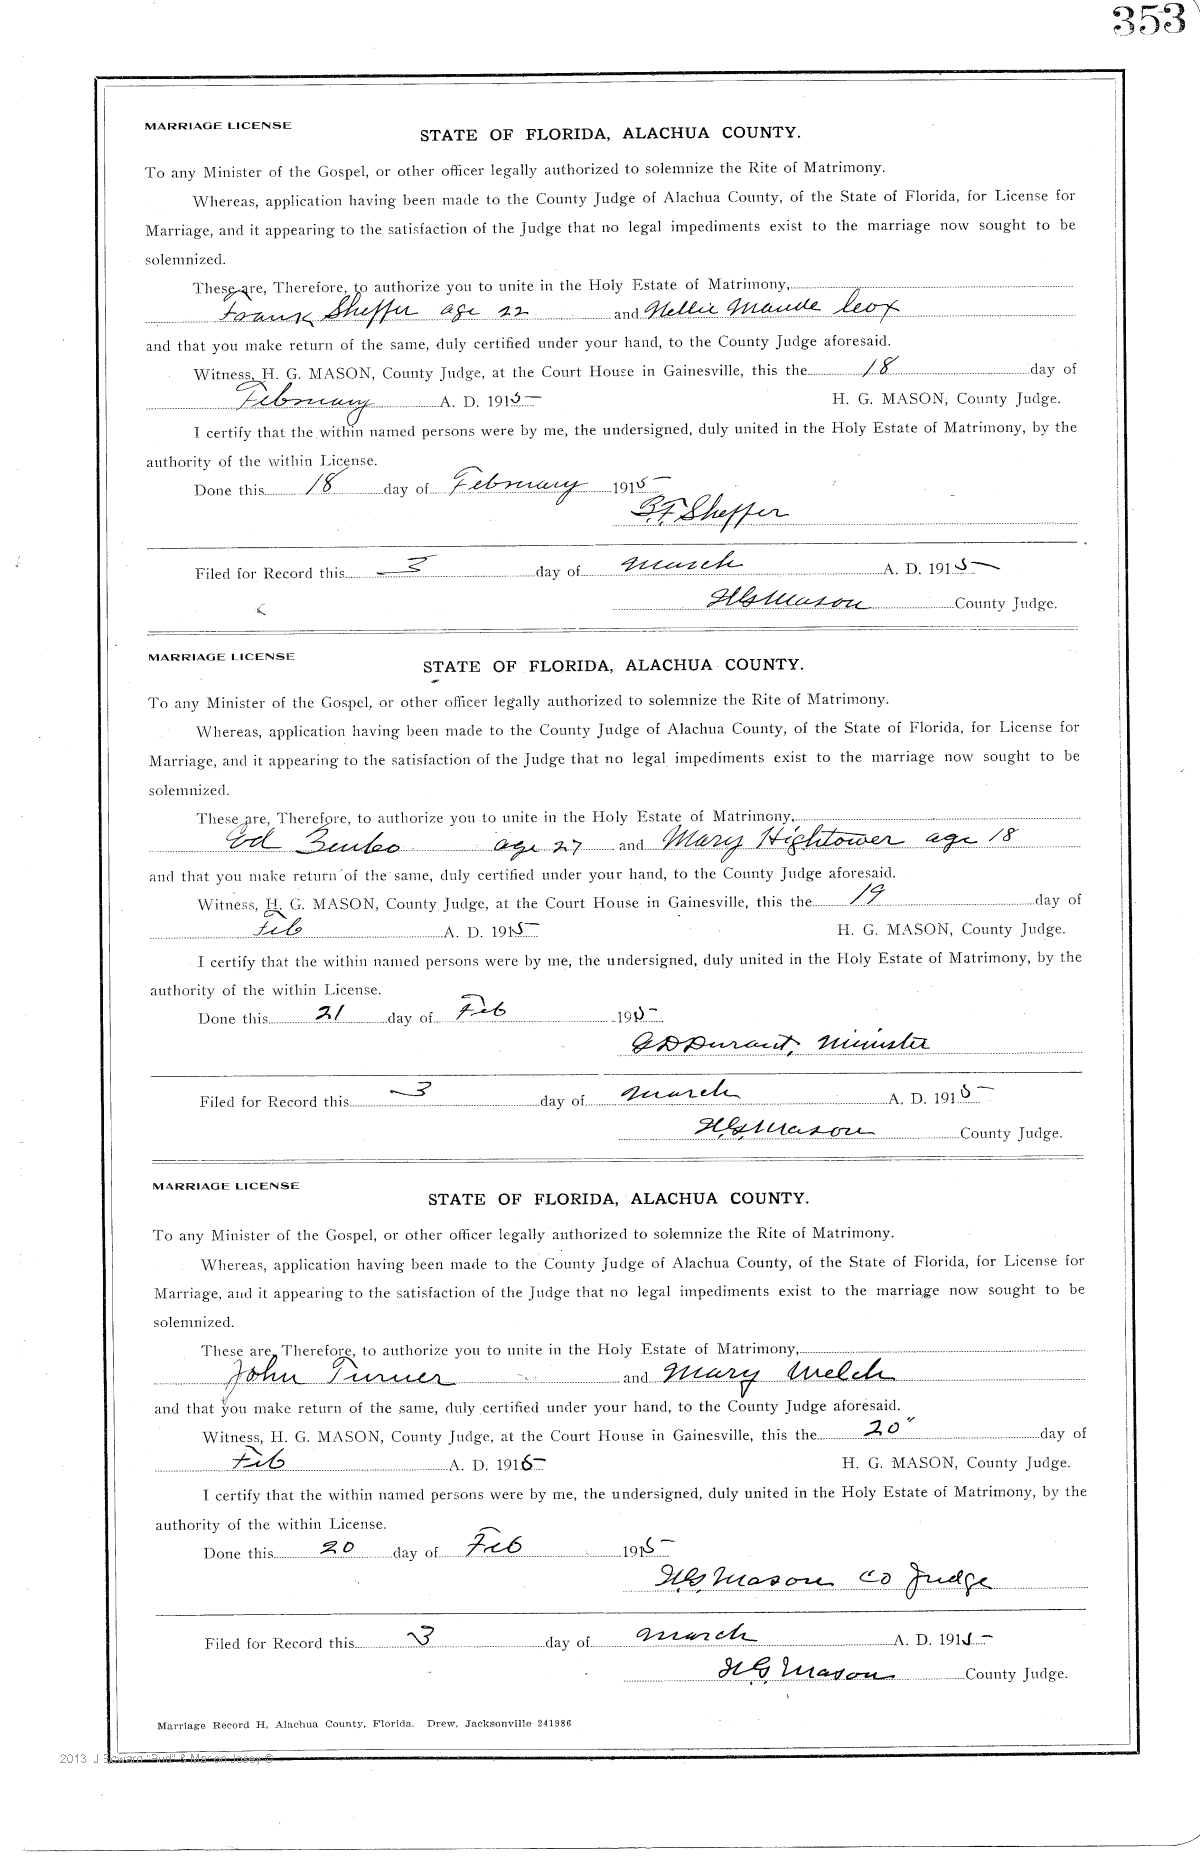 353
MARRIAGE LICENSE
STATE OF FLORIDA, ALACHUA COUNTY.
To any Minister of the Gospel, or other officer legally authorized to solemnize the Rite of Matrimony.
Whereas, application having been made to the County Judge of Alachua County, of the State of Florida, for License for
Marriage, and it appearing to the satisfaction of the Judge that no legal impediments exist to the marriage now sought to be
solemnized.
These are, Therefore, to authorize you to unite in the Holy Estate of Matrimony,
Frank Sheffer age 22 and Nellie Maude
and that you make return of the same, duly certified under your hand, to the County Judge aforesaid.
Witness, H. G. MASON, County Judge, at the Court House in Gainesville, this the 18 day of
February A. D. 1915 H. G. MASON, County Judge.
I certify that the within named persons were by me, the undersigned, duly united in the Holy Estate of Matrimony, by the
authority of the within License.
Done this 18 day of February 1915
B.F. Sheffer
Filed for Record this 3 day of March A. D. 1915
H G Mason County Judge.
MARRIAGE LICENSE
STATE OF FLORIDA, ALACHUA COUNTY.
To any Minister of the Gospel, or other officer legally authorized to solemnize the Rite of Matrimony.
Whereas, application having been made to the County Judge of Alachua County, of the State of Florida, for License for
Marriage, and it appearing to the satisfaction of the Judge that no legal impediments exist to the marriage now sought to be
solemnized.
These are, Therefore, to authorize you to unite in the Holy Estate of Matrimony,
Ed age 27 and Mary Hightower age 18
and that you make return of the same, duly certified under your hand, to the County Judge aforesaid.
Witness, H. G. MASON, County Judge, at the Court House in Gainesville, this the 19 day of
Feb A. D. 1915 H. G. MASON, County Judge.
I certify that the within named persons were by me, the undersigned, duly united in the Holy Estate of Matrimony, by the
authority of the within License.
Done this 21 day of Feb 1915
G D Durant, Minister
Filed for Record this 3 day of March A. D. 1915
H.G. Mason County Judge.
MARRIAGE LICENSE
STATE OF FLORIDA, ALACHUA COUNTY.
To any Minister of the Gospel, or other officer legally authorized to solemnize the Rite of Matrimony.
Whereas, application having been made to the County Judge of Alachua County, of the State of Florida, for License for
Marriage, and it appearing to the satisfaction of the Judge that no legal impediments exist to the marriage now sought to be
solemnized.
These are, Therefore, to authorize you to unite in the Holy Estate of Matrimony,
John Turner and Mary Welch
and that you make return of the same, duly certified under your hand, to the County Judge aforesaid.
Witness, H. G. MASON, County Judge, at the Court House in Gainesville, this the 20" day of
Feb A. D. 1915 H. G. MASON, County Judge.
I certify that the within named persons were by me, the undersigned, duly united in the Holy Estate of Matrimony, by the
authority of the within License.
Done this 20 day of Feb 1915
H.G. Mason Co Judge
Filed for Record this 3 day of March A. D. 1915
H.G. Mason County Judge.
Marriage Record H, Alachua County, Florida. Drew, Jacksonville 241986
2013 J "Bud" & Mason ©